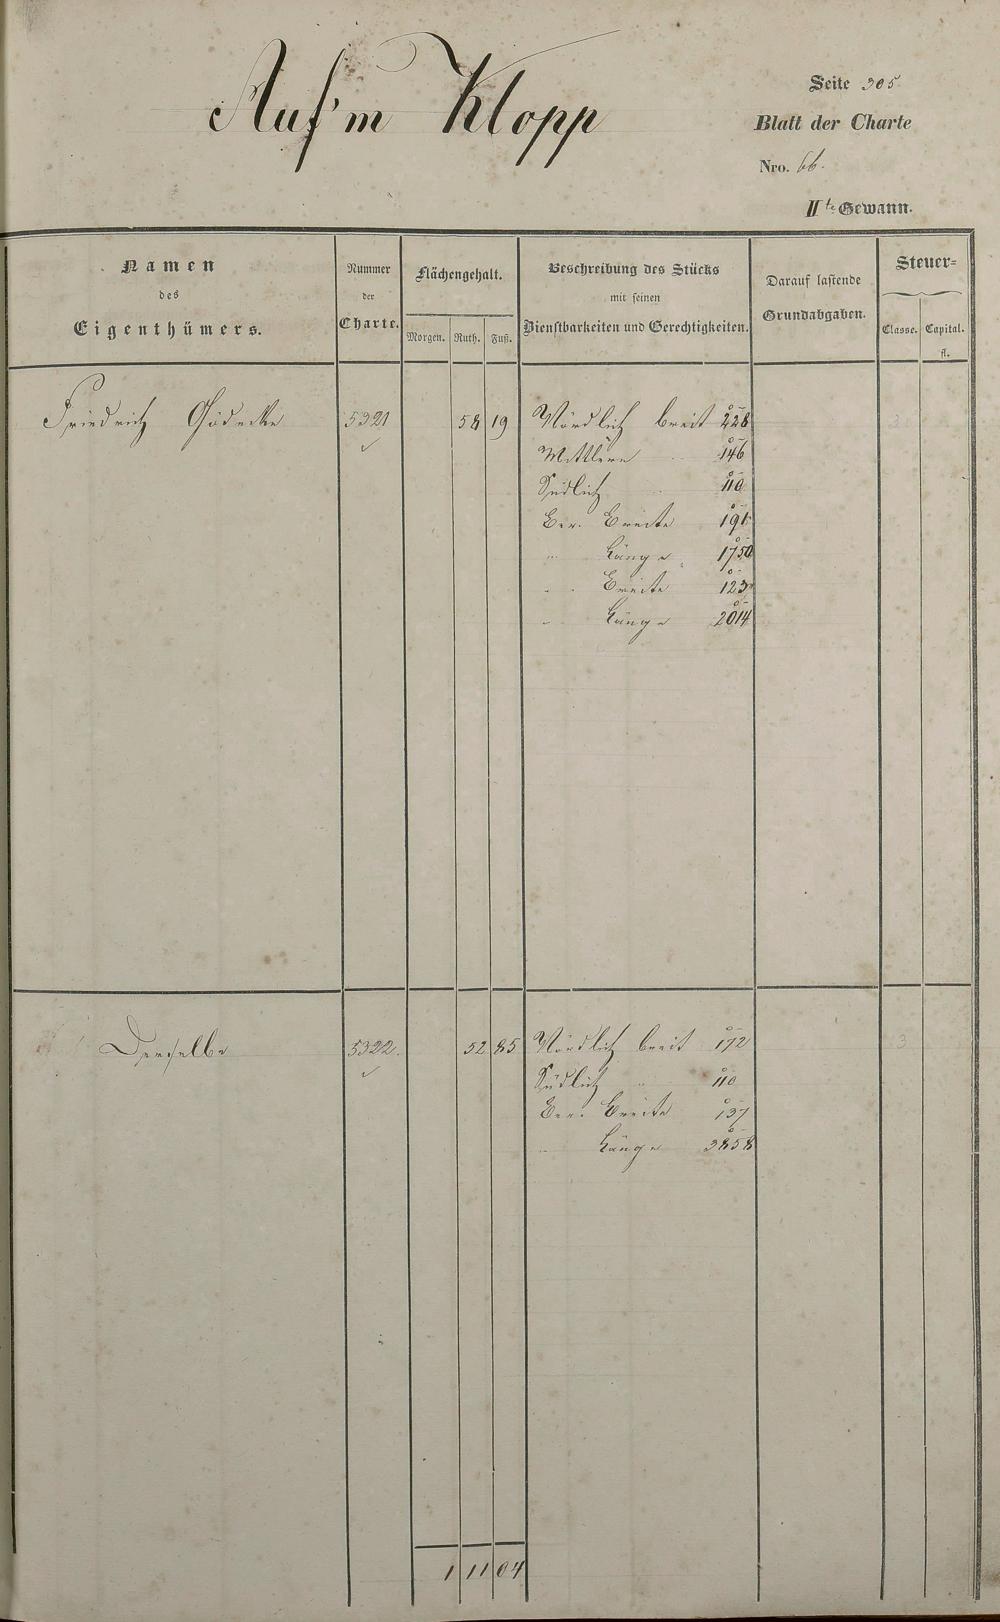 Auf'm Klopp
Seite 305
Blatt der Charte
Nro. 66.
II te Gewann.
Namen
des
Eigenthümers.
Nummer
der
Charte.
Flächengehalt.
Morgen. Ruth. Fuß.
Beschreibung des Stücks
mit seinen
Dienstbarkeiten und Gerechtigkeiten.
Darauf lastende
Grundabgaben.
Steuer=
Classe. Capital.
fl.
Friedrich Gödecke 5321 58 19 Nördlich breit 228
Mittlere 146
Südlich 110
Ber. Breite 191
" Länge 1750
" Breite 123
" Länge 2014
Derselbe 5322. 52 85 Nördlich breit 172 3
Südlich " 110
Ber. Breite 137
" Länge 3858
1 11 04